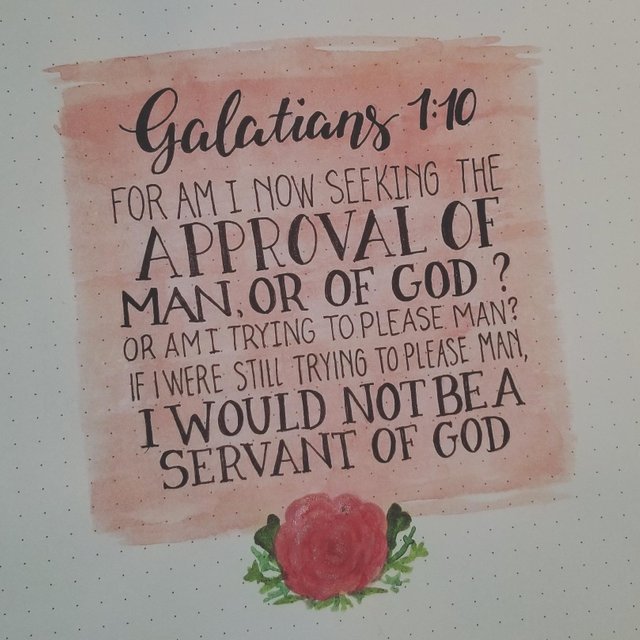 Galatians 1:10
FOR AM I NOW SEEKING THE
APPROVAL OF
MAN, OR OF GOD?
OR AM I TRYING TO PLEASE MAN?
IF I WERE STILL TRYING TO PLEASE MAN,
I WOULD NOT BE A
SERVANT OF GOD